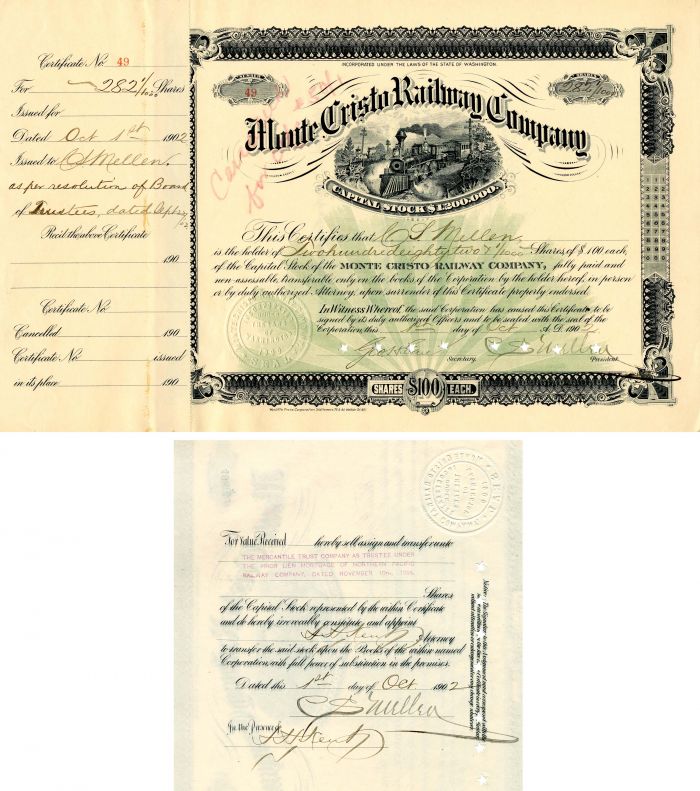 Certificate No. 49
For 282 1/1000 Shares
Issued for
Dated Oct 1st 1902
Issued to C S Mellen,
as per resolution of Board
of Trustees, dated Sept
Rec'd the above Certificate
190
Certificate No.
Cancelled 190
Certificate No. issued
in its place 190
INCORPORATED UNDER THE LAWS OF THE STATE OF WASHINGTON.
NUMBER
49
SHARES
282 1/1000
Monte Cristo Railway Company
CAPITAL STOCK $1,200,000.
This Certifies that C S Mellen
is the holder of Two hundred eighty two & 1/1000 Shares of $100 each,
of the Capital Stock of the MONTE CRISTO RAILWAY COMPANY, fully paid and
non-assessable, transferable only on the books of the Corporation by the holder hereof, in person
or by duly authorized Attorney, upon surrender of this Certificate properly endorsed.
In Witness Whereof, the said Corporation has caused this Certificate to be
signed by its duly authorized Officers and to be sealed with the seal of the
Corporation this 1st day of Oct A.D. 1902
Secretary. C S Mellen President.
SHARES $100 EACH
For Value Received hereby sell, assign and transfer unto
THE MERCANTILE TRUST COMPANY AS TRUSTEE UNDER
THE PRIOR LIEN MORTGAGE OF NORTHERN PACIFIC
RAILWAY COMPANY, DATED NOVEMBER 10TH, 1896,
Shares
of the Capital Stock represented by the within Certificate
and do hereby irrevocably constitute and appoint
Attorney
to transfer the said stock upon the Books of the within named
Corporation with full power of substitution in the premises.
Dated this 1st day of Oct 1902
C S Mellen
In the Presence of